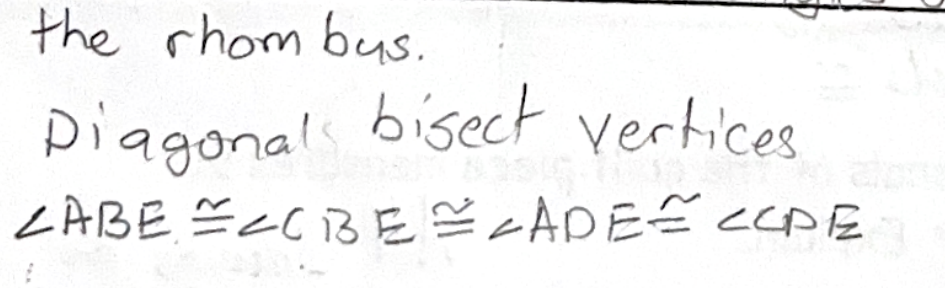 the rhombus.
Diagonals bisect vertices
∠ABE ≅ ∠CBE ≅ ∠ADE ≅ ∠CDE